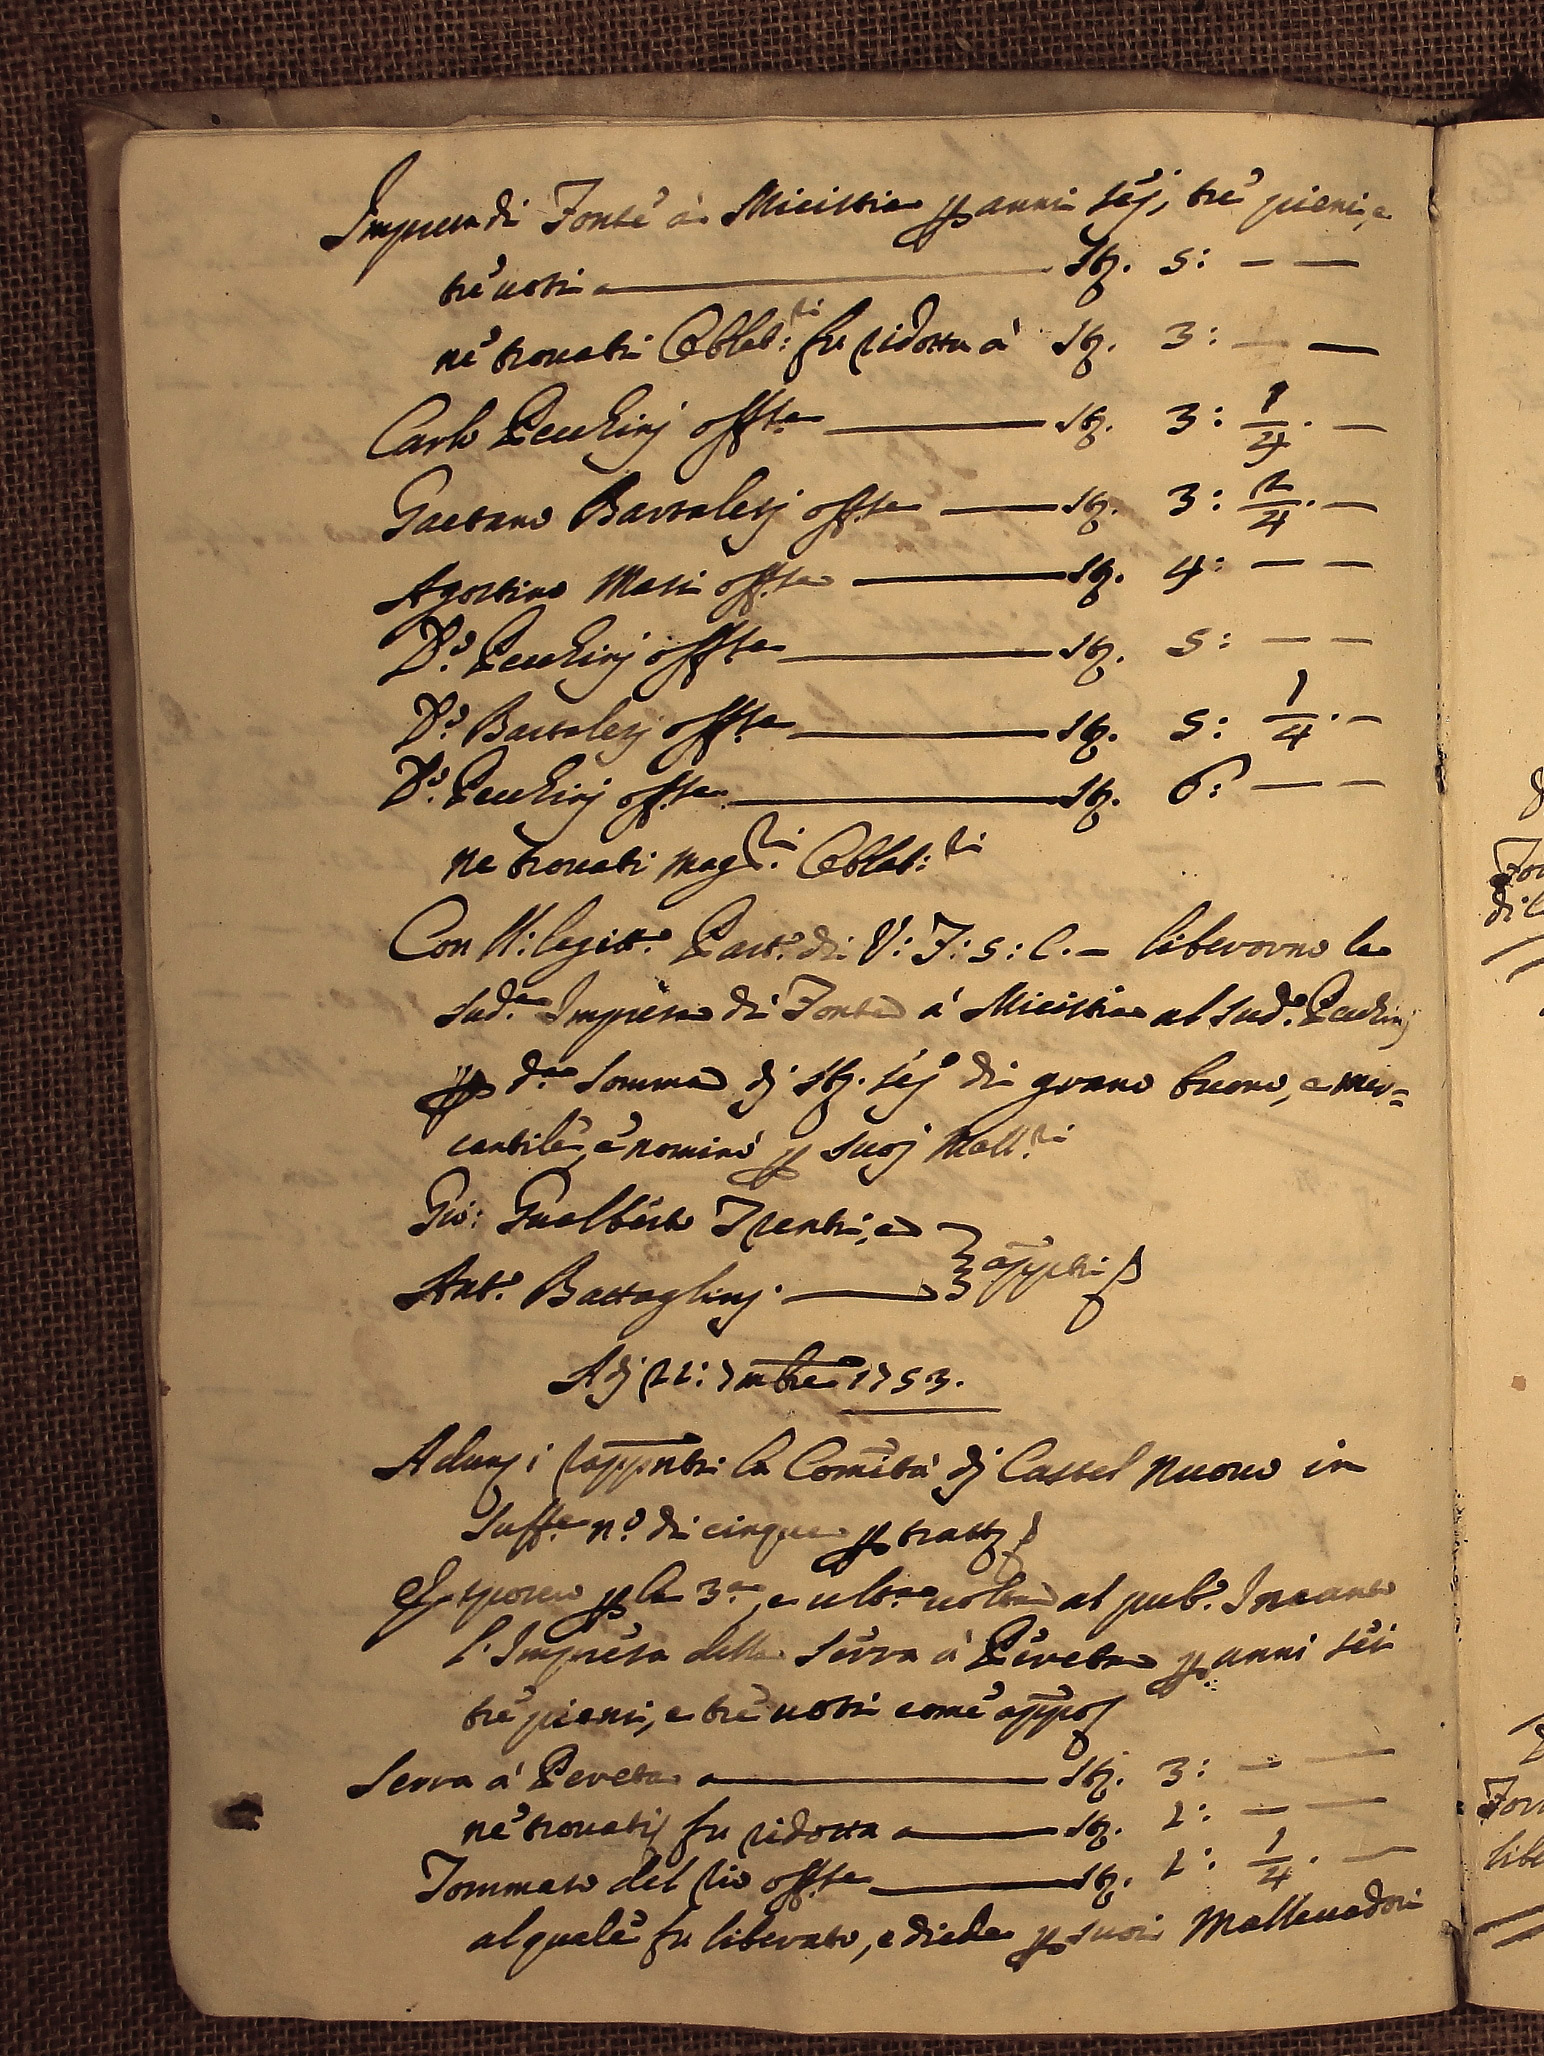 Impresa di Fonte à Micittia p anni sej, tre pieni, e
tre uoti Stj. 5: — —
né trouati Oblat:ri fu ridotta à Stj. 3: — —
Carlo Pecchinj offse Stj. 3: 1/4. —
Gaetano Bartalesj offse Stj. 3: 2/4. —
Agostino Masi offse Stj. 4: — —
Do. Pecchinj offse Stj. 5: — —
Do. Bartalesj offse Stj. 5: 1/4. —
Do. Pecchinj offse Stj. 6: — —
ne trouati magri. Oblat:ri
Con N: legitto. Parto. di V: F: s: C. — liberorno la
suda. Impresa di Fonte à Micittia al sudo. Pecchinj
p da. somma dj Stj. sej di grano buono, e mer=
cantile, e nominò p suoj Mallri
Gio: Gualberto Trenti, e
Anto. Battaglinj appti
Adj 22: 7mbre 1753.
Adunj i Rappnti la Comità dj Castel nuouo in
suffe. no. di cinque p tratt
Esposero p la 3a, e ulta. uolta al pubo. Incanto
l'Impresa della Serra à Pereta p anni sei
tre pieni, e tre uoti come appo
Serra à Pereta Stj. 3: — —
né trouatij fu ridotta Stj. 2: — —
Tommaso del Rio offse Stj. 2: 1/4. —
al quale fu liberato, e diede p suoi Malleuadori